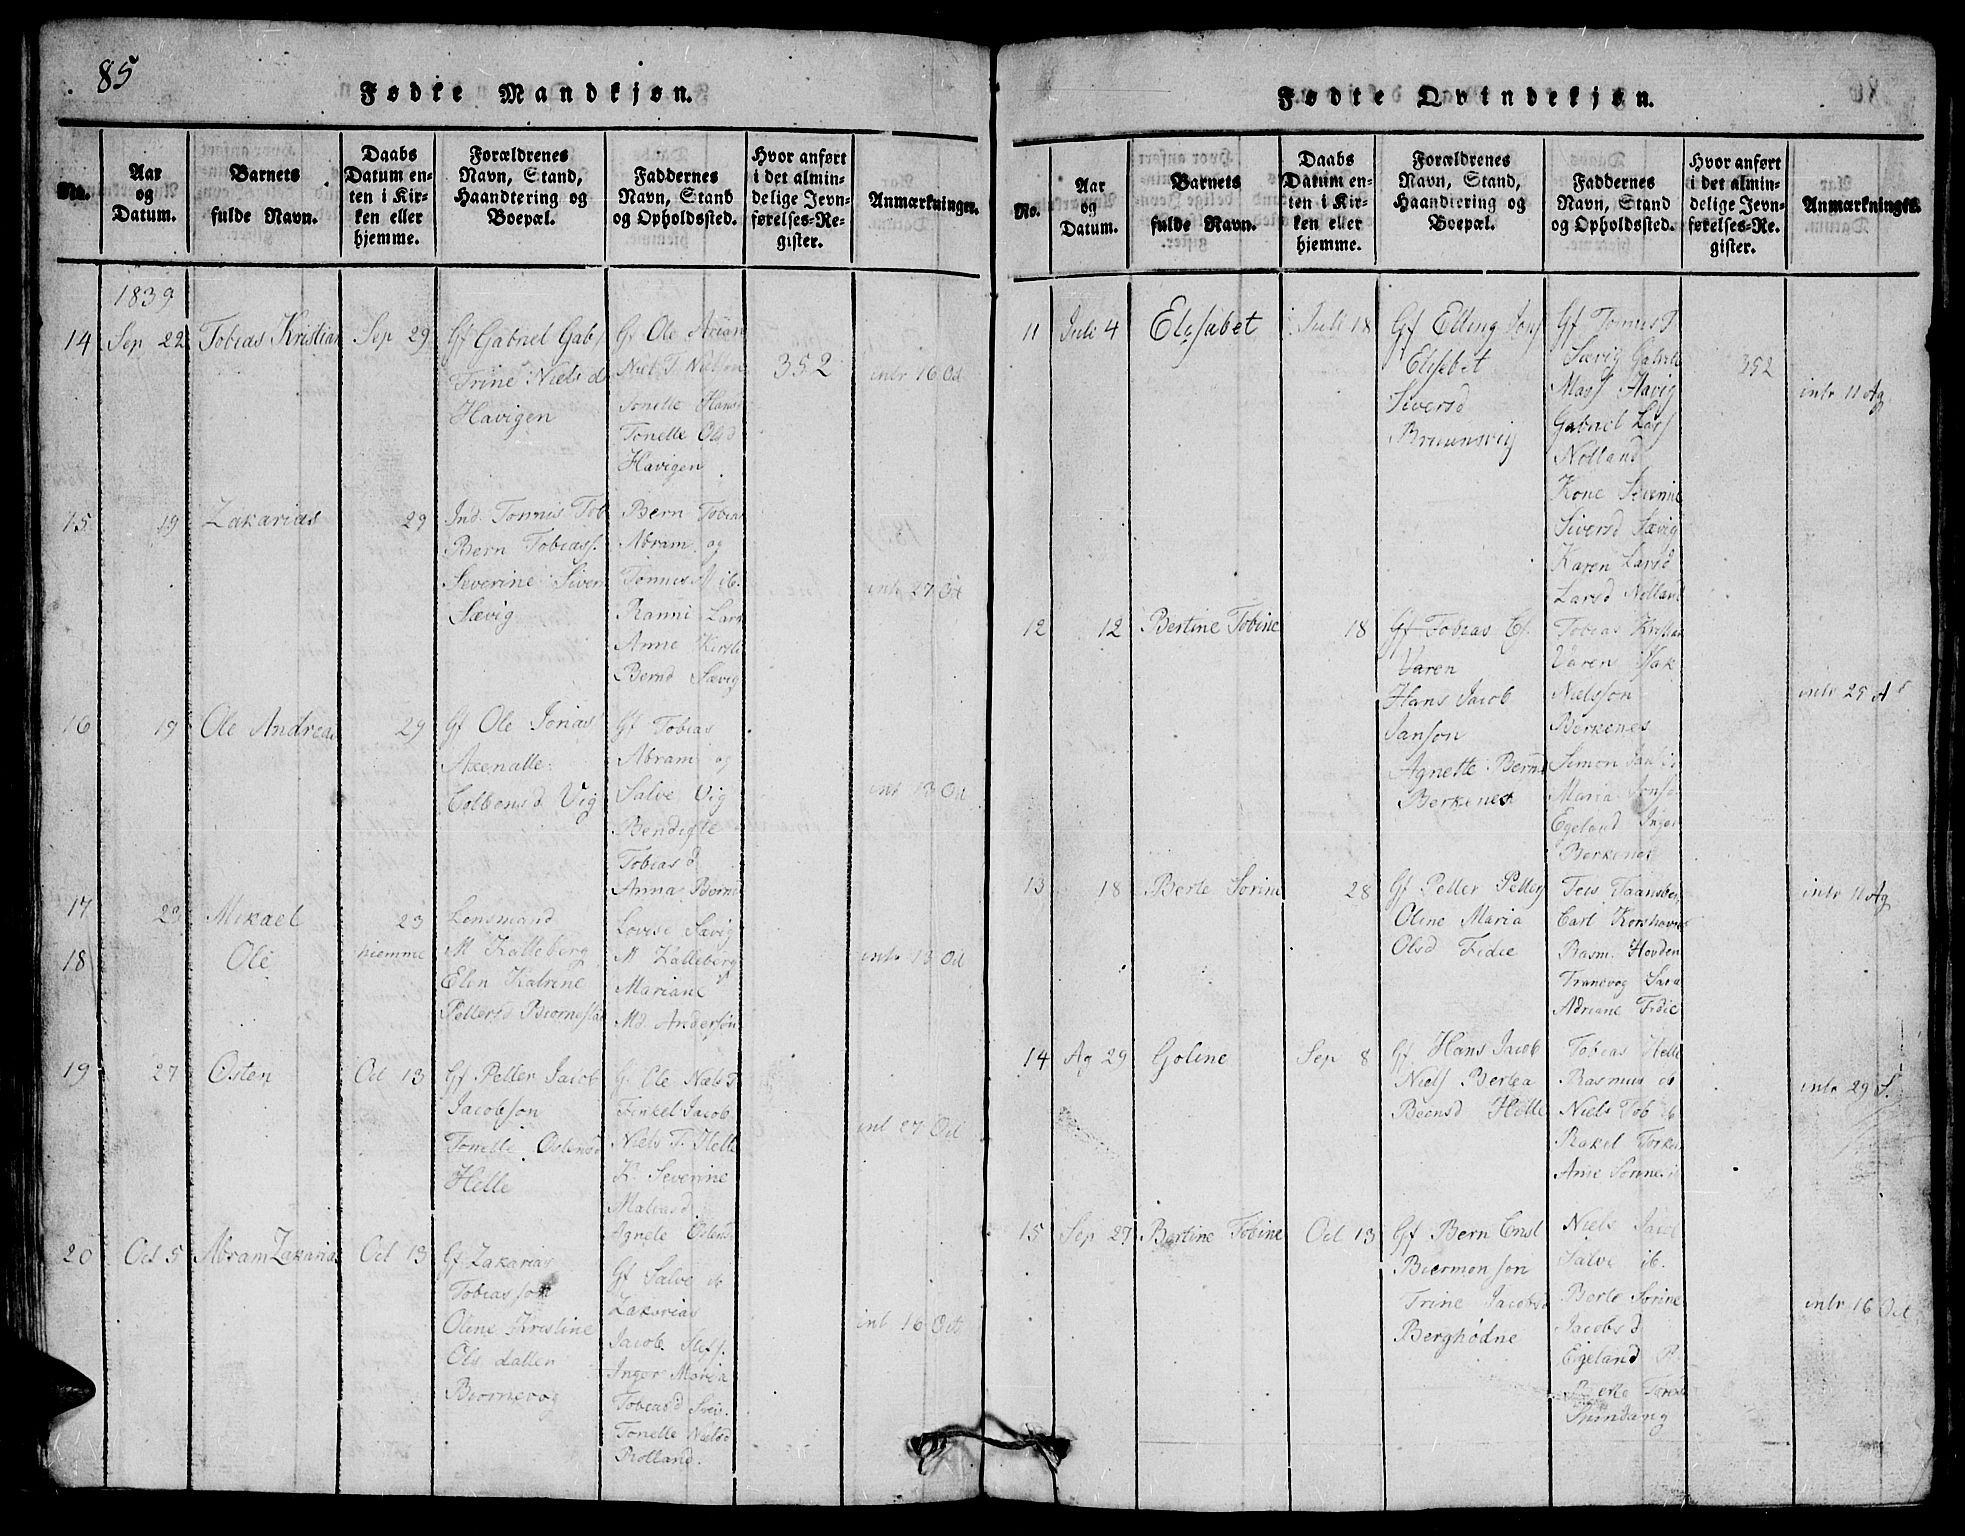 85
Fødte Mandkjøn.
No.
Aar og Datum.
Barnets fulde Navn.
Daabs Datum enten i Kirken eller hjemme.
Forældrenes Navn, Stand, Haandtering og Boepæl.
Faddernes Navn, Stand og Opholdssted.
Hvor anført i det almindelige Jevnførelses-Register.
Anmærkninger.
1839
14 Sep 22 Tobias Kristian Sep 29
Gf Gabriel Gabs
Trine Niels d
Havigen
Gf Ole Arian
Niel T Nielsen
Tonette Hansd
Tonette Olsd
Havigen
352
intr 16 Oct
15 19 Zakarias 29
Ind. Tonnis Tob
Bern Tobiass.
Severine Siver
Sævig
Bern Tobias
Abram og
Tonnes A ib.
Ranni Lars
Anne Kirsti
Bernd Sævig
intr 27 Oct
16 19 Ole Andreas 29
Gf Ole Jonas
Axenalle
Colbensd Vig
Gf Tobias
Abram og
Salve Vig
Bendigte
Tobias d
Anna Bern
intr 13 Oct
17 23 Mikael 23
18 Ole hiemme
Lensmand
M Kalleberg
Elen Katrine
Pettersd Biornestad
Lovise Sævig
M Kalleberg
Mariane
Md. Andersön
intr 13 Oct
19 27 Osten Oct 13
Gf Petter Jacob
Jacobson
Tonette Ostensd
Helle
Gf Ole Niels T
Finkel Jacob
Niels T. Helle
K. Severine
Matiasd
Agnete Ostensd
int 27 Oct
20 Oct 5 Abram Zakarias Oct 13
Gf Zakarias
Tobiasson
Oline Kristine
Ols datter
Biornevog
Gf Salve ib
Zakarias
Jacob
Inger Maria
Tobiasd
Tonette Nielsd
Rolland.
int 16 Oct
Fødte Qvindekjøn.
No.
Aar og Datum.
Barnets fulde Navn.
Daabs Datum enten i Kirken eller hjemme.
Forældrenes Navn, Stand, Haandtering og Boepæl.
Faddernes Navn, Stand og Opholdssted.
Hvor anført i det almindelige Jevnførelses-Register.
Anmærkninger.
11 Juli 4 Elisabet Juli 18
Gf Elling Jons
Elisabet
Siversd
Bruunsvig
Gf Tonnis T
Sævig Gabriel
Mass Havig
Gabriel Lars
Nolland
Kone Severine
Siversd Sævig
Karen Larsd
Larsd Nolland
352
intr 11 Ag
12 12 Bertine Tobine 18
Gf Tobias Cf.
Varen
Hans Jacob
Janson
Agnette Bernd
Berkenes
Tobias Kristian
Varen Jak
Nielsson
Berkenes
Simon
Maria Jons
Egeland Inger
Berkenes
intr 25 A
13 18 Berte Sorine 28
Gf Petter Petters
Oline Maria
Olsd Fidie
Carl Korshavn
Rasm. Hovden
Tranevog Sara
Adriane Fidie
intr 11 Ag
14 Ag 29 Goline Sep 8
Gf Hans Jacob
Niels Bertea
Beensd Helle
Tobias Helle
Rasmus ib
Niels Tob ib
Rakel Torkel
Ane Sonne ib
intr 29 S.
15 Sep 27 Bertine Tobine Oct 13
Gf Bern Enst
Biermonson
Trine Jacobsd
Berghödne
Niels Jacob
Salve ib.
Berte Sorine
Jacobs d
Egeland P
Berte Torine
intr 16 Oct